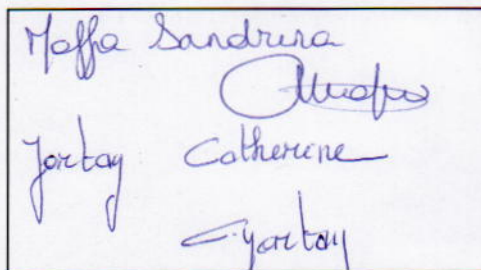 Maffa Sandrina
Jortay Catherine
C. Jortay